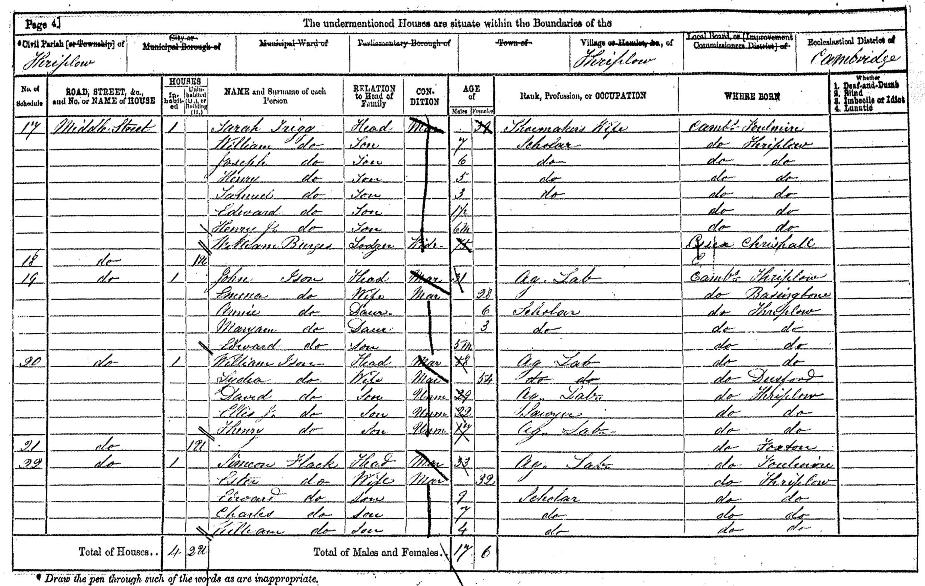 Page 4.]
The undermentioned Houses are situate within the Boundaries of the
*Civil Parish [or Township] of Thriplow
City or Municipal Borough of
Municipal Ward of
Parliamentary Borough of
Town of
Village or Hamlet, &c., of Thriplow
Local Board, or [Improvement Commissioners District] of
Ecclesiastical District of Cambridge
No. of Schedule
ROAD, STREET, &c., and No. or NAME of HOUSE
HOUSES
Inhabited
Uninhabited (U.), or Building (B.)
NAME and Surname of each Person
RELATION to Head of Family
CONDITION
AGE of
Males
Females
Rank, Profession, or OCCUPATION
WHERE BORN
Whether
1. Deaf-and-Dumb
2. Blind
3. Imbecile or Idiot
4. Lunatic
17 Middle Street 1 Sarah Head Mar Shoemakers Wife Camb. Foulmire
William do Son 7 Scholar do Thriplow
Joseph do Son 6 do do do
Henry do Son 5 do do do
Samuel do Son 3 do do do
Edward do Son do do
Henry J. do Son 6m do do
William Burges Lodger Widr Essex Chrishall
18 do 1u
19 do 1 John Ison Head Mar 31 Ag. Lab Camb. Thriplow
Emma do Wife Mar 28 do Bassingbone
Annie do Daur 6 Scholar do Thriplow
Maryann do Daur 3 do do do
Edward do Son 5m do do
20 do 1 William Ison Head Mar Ag Lab do do
Lydia do Wife Mar 54 do do do Duxford
David do Son Unm 29 Ag. Lab. do Thriplow
Ellis J. do Son Unm 22 Sawyer do do
Henry do Son Unm 17 Ag. Lab. do do
21 do 1u do Foxton
22 do 1 Simeon Flack Head Mar 33 Ag. Lab do Foulmire
Ester do Wife Mar 32 do Thriplow
Edward do Son 9 Scholar do do
Charles do Son 7 do do do
William do Son 4 do do do
Total of Houses.. 4 2u
Total of Males and Females.. 17 6
* Draw the pen through such of the words as are inappropriate.